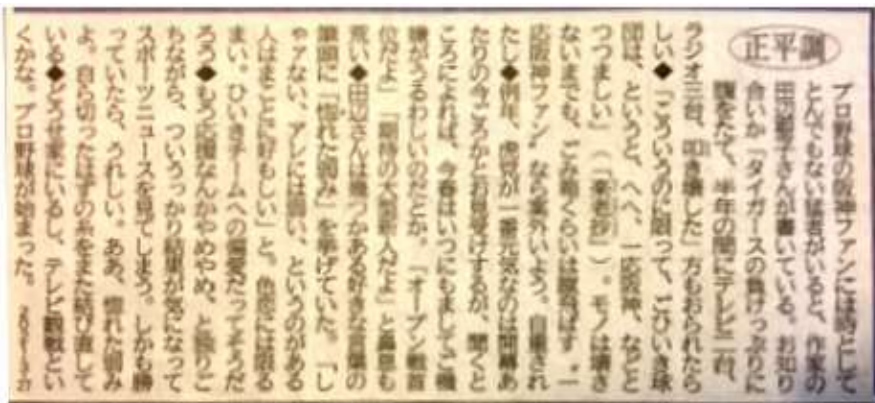 正平調
プロ野球の阪神ファンには時として
とんでもない猛者がいると、作家の
田辺聖子さんが書いている。お知り
合いか「タイガースの負けっぷりに
腹をたて、半年の間にテレビ二台、
ラジオ三台、叩き壊した」方もおられたら
しい◆「こういうのに限って、ごひいき球
団は、というと、へへ、一応阪神、などと
つつましい」(「楽老抄」)。モノは壊さ
ないまでも、ごみ箱くらいは蹴飛ばす“一
応阪神ファン”なら案外いよう。自重され
たし◆例年、虎党が一番元気なのは開幕あ
たりの今ごろかとお見受けするが、聞くと
ころによれば、今春はいつにもましてご機
嫌がうるわしいのだとか。「オープン戦首
位だよ」「期待の大型新人だよ」と鼻息も
荒い◆田辺さんは幾つかある好きな言葉の
筆頭に「惚れた弱み」を挙げていた。「し
ゃアない、アレには弱い、というのがある
人はまことに好もしい」と。色恋には限る
まい。ひいきチームへの偏愛だってそうだ
ろう◆もう応援なんかやめやめ、と独りご
ちながら、ついうっかり結果が気になって
スポーツニュースを見てしまう。しかも勝
っていたら、うれしい。ああ、惚れた弱み
よ。自ら切ったはずの糸をまた結び直して
いる◆どうせ家にいるし、テレビ観戦とい
くかな。プロ野球が始まった。